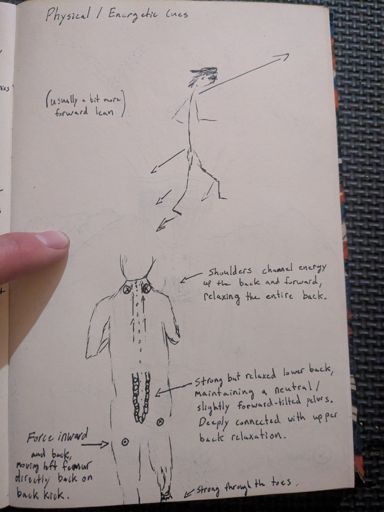 Physical / Energetic Cues
(usually a bit more
forward lean)
Shoulders channel energy
up the back and forward,
relaxing the entire back.
Strong but relaxed lower back,
maintaining a neutral/
slightly forward-tilted pelvis.
Deeply connected with upper
back relaxation.
Force inward
and back,
moving left femur
directly back on
back kick.
strong through the toes.